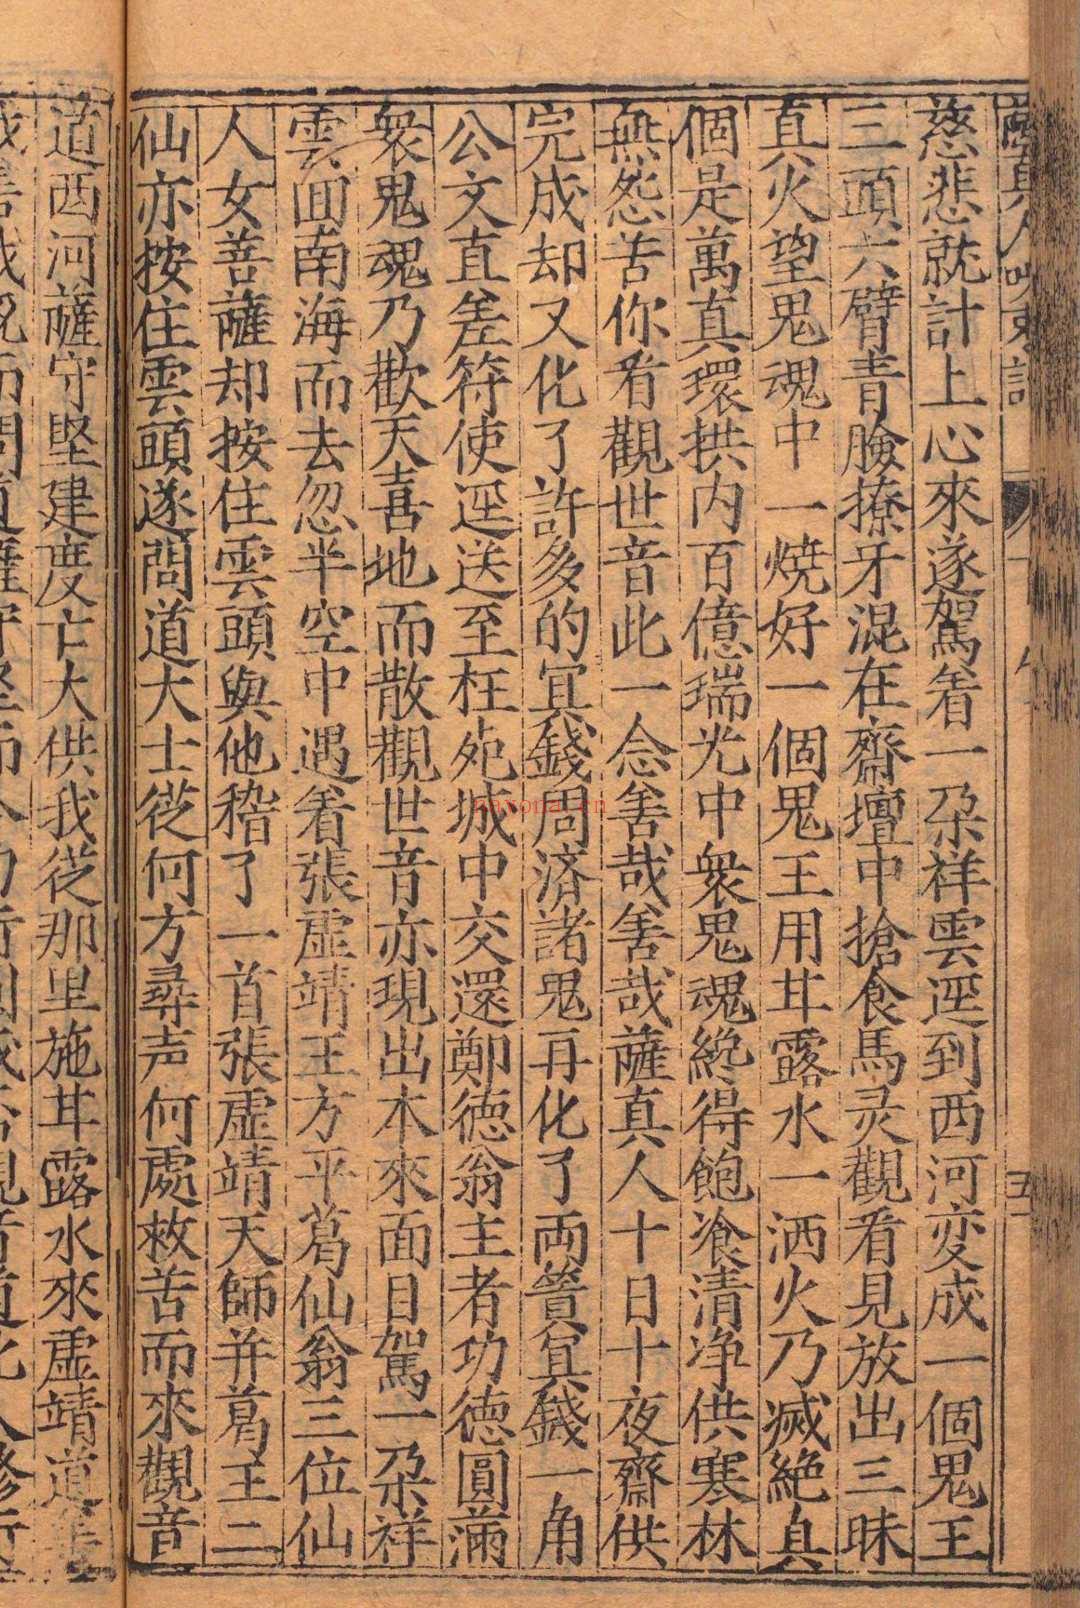 薩真人呪棗記
慈悲就計上心來遂駕着一朶祥雲逕到西河变成一個鬼王
三頭六臂青臉獠牙混在齋壇中搶食馬灵觀看見放出三昧
真火望鬼魂中一燒好一個鬼王用甘露水一洒火乃滅絶真
個是萬真環拱内百億瑞光中衆鬼魂纔得飽飡清净供寒林
無怨苦你看觀世音此一念善哉善哉薩真人十日十夜齋供
完成却又化了許多的冥錢周濟諸鬼再化了両簣冥錢一角
公文直差符使逕送至枉死城中交還鄭德翁主者功德圓滿
衆鬼魂乃歡天喜地而散觀世音亦現出本來面目駕一朶祥
雲囬南海而去忽半空中遇着張虛靖王方平葛仙翁三位仙
人女菩薩却按住雲頭與他稽了一首張虛靖天師并葛王二
仙亦按住雲頭遂問道大士從何方尋声何處救苦而來觀音
道西河薩守堅建度亡大供我從那里施甘露水來虛靖道